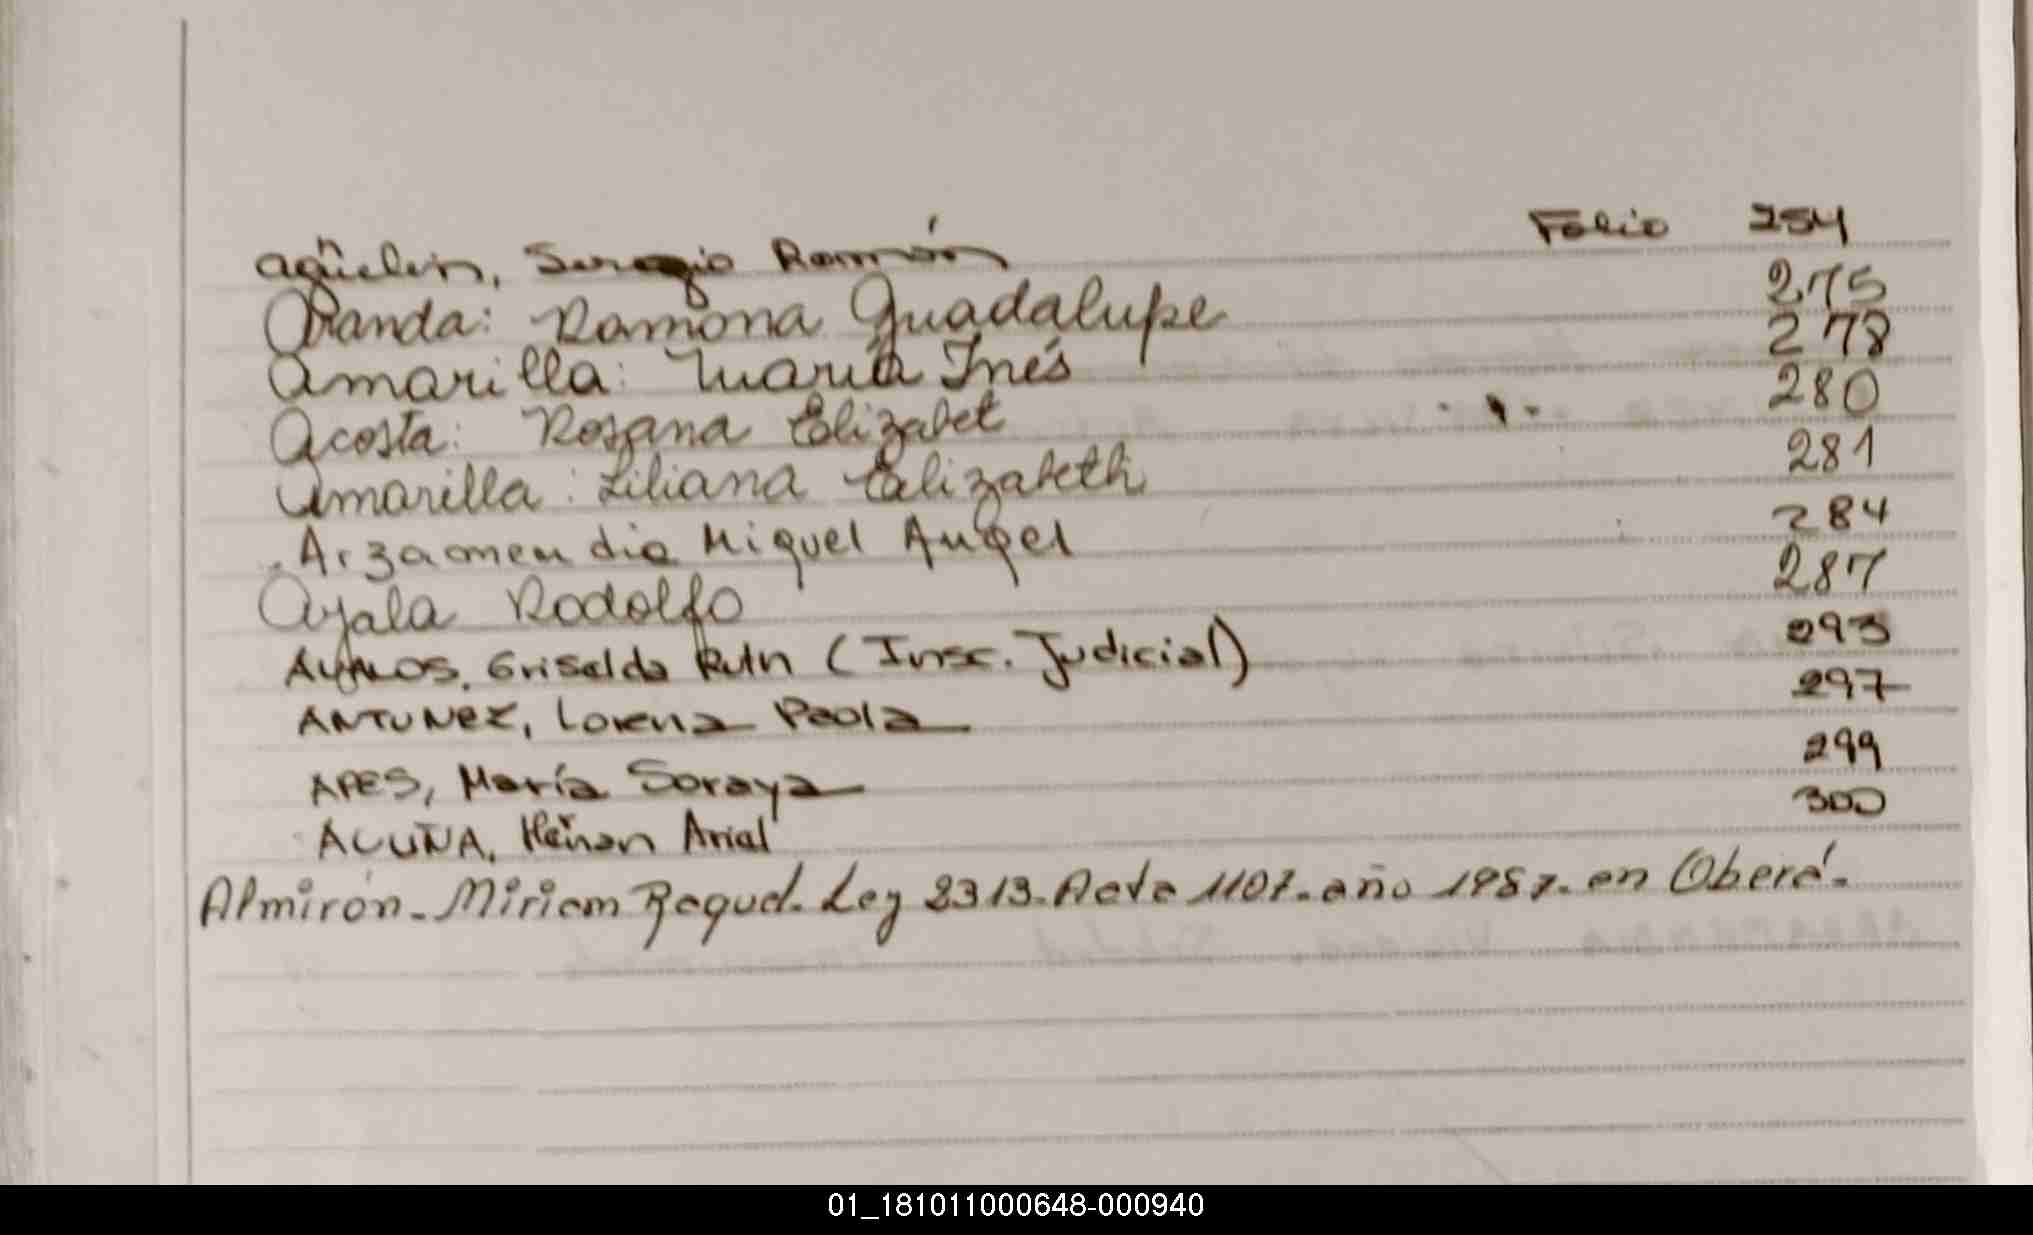 Agüelin, Sergio Ramón Folio 254
Aranda: Ramona Guadalupe 275
Amarilla: María Inés 278
Acosta: Rosana Elizabet 280
Amarilla: Liliana Elizabeth 281
Arzamendia Miguel Angel 284
Ayala Rodolfo 287
AYALOS, Griselda Ruth (Insc. Judicial) 293
ANTUNEZ, Lorena Paola 297
APES, María Soraya 299
ACUÑA, Hernan Arial 300
Almirón - Miriam Raquel. Ley 2313. Acta 1107. año 1987. en Oberá.
01_181011000648-000940